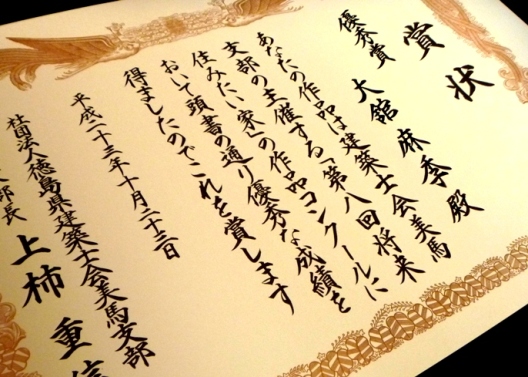 賞状
優秀賞 大舘麻季殿
あなたの作品は建築士会美馬
支部の主催する「第八回将来
住みたい家」の作品コンクールに
おいて頭書の通り優秀な成績を
得ましたのでこれを賞します
平成二十三年十月二十三日
社団法人徳島県建築士会美馬支部
部長 上柿重信